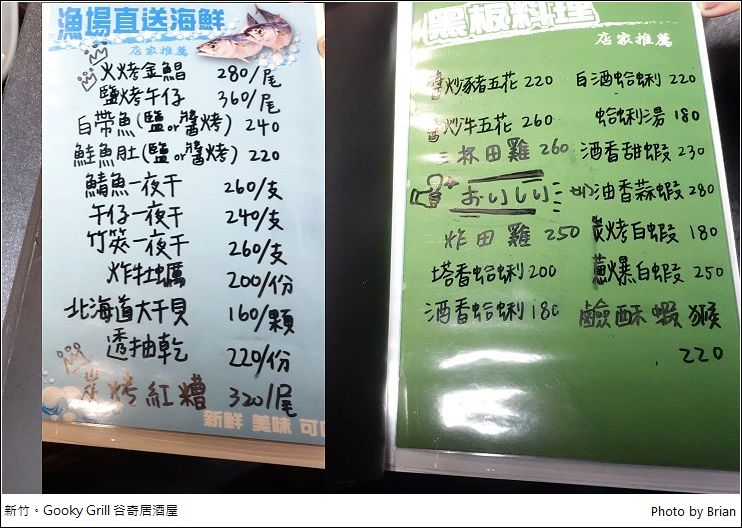 漁場直送海鮮
店家推薦
火烤金鯧 280/尾
鹽烤午仔 360/尾
白帶魚(鹽or醬烤) 240
鮭魚肚(鹽or醬烤) 220
鯖魚一夜干 260/支
午仔一夜干 240/支
竹筴一夜干 260/支
炸牡蠣 200/份
北海道大干貝 160/顆
透抽乾 220/份
烤紅糟 320/尾
新鮮 美味 可
黑板料理
店家推薦
醬炒豬五花 220
醬炒牛五花 260
三杯田雞 260
おいしい
炸田雞 250
塔香蛤蜊 200
酒香蛤蜊 180
白酒蛤蜊 220
蛤蜊湯 180
酒香甜蝦 230
油香蒜蝦 280
炭烤白蝦 180
蔥爆白蝦 250
鹹酥蝦猴
220
新竹。Gooky Grill 谷奇居酒屋
Photo by Brian